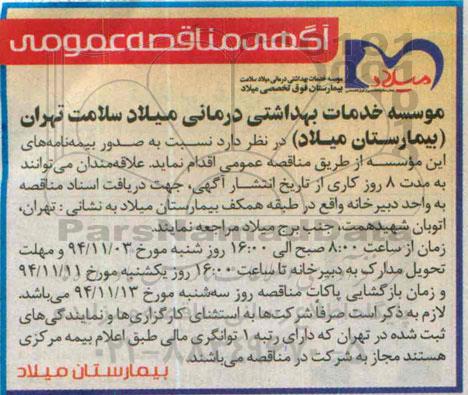 آگهی مناقصه عمومی
میلاد
موسسه خدمات بهداشتی درمانی میلاد سلامت
بیمارستان فوق تخصصی میلاد
موسسه خدمات بهداشتی درمانی میلاد سلامت تهران
(بیمارستان میلاد) در نظر دارد نسبت به صدور بیمه‌نامه‌های
این مؤسسه از طریق مناقصه عمومی اقدام نماید. علاقه‌مندان می‌توانند
به مدت ۸ روز کاری از تاریخ انتشار آگهی، جهت دریافت اسناد مناقصه
به واحد دبیرخانه واقع در طبقه همکف بیمارستان میلاد به نشانی: تهران،
اتوبان شهیدهمت، جنب برج میلاد مراجعه نمایند.
زمان از ساعت ۸:۰۰ صبح الی ۱۶:۰۰ روز شنبه مورخ ۹۴/۱۱/۰۳ و مهلت
تحویل مدارک به دبیرخانه تا ساعت ۱۶:۰۰ روز یکشنبه مورخ ۹۴/۱۱/۱۱
و زمان بازگشایی پاکات مناقصه روز سه‌شنبه مورخ ۹۴/۱۱/۱۳ می‌باشد.
لازم به ذکر است صرفاً شرکت‌ها به استثنای کارگزاری‌ها و نمایندگی‌های
ثبت شده در تهران که دارای رتبه ۱ توانگری مالی طبق اعلام بیمه مرکزی
هستند مجاز به شرکت در مناقصه می‌باشند
بیمارستان میلاد